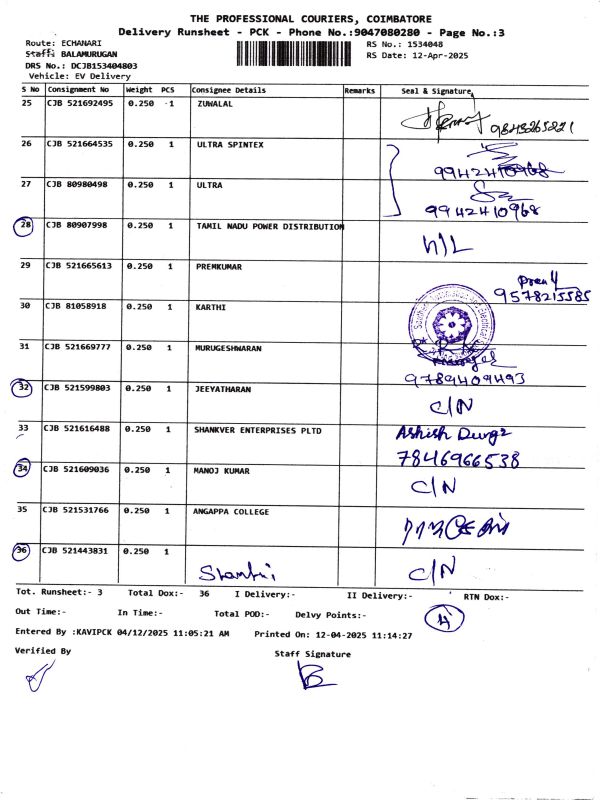 THE PROFESSIONAL COURIERS, COIMBATORE
Delivery Runsheet - PCK - Phone No.:9047080280 - Page No.:3
Route: ECHANARI RS No.: 1534048
Staff: BALAMURUGAN RS Date: 12-Apr-2025
DRS No.: DCJB153404803
Vehicle: EV Delivery
S No Consignment No Weight PCS Consignee Details Remarks Seal & Signature
25 CJB 521692495 0.250 1 ZUWALAL
26 CJB 521664535 0.250 1 ULTRA SPINTEX
9942410968
27 CJB 80980498 0.250 1 ULTRA
9942410968
28 CJB 80907998 0.250 1 TAMIL NADU POWER DISTRIBUTION
29 CJB 521665613 0.250 1 PREMKUMAR
9578215585
30 CJB 81058918 0.250 1 KARTHI
31 CJB 521669777 0.250 1 MURUGESHWARAN
9789409493
32 CJB 521599803 0.250 1 JEEYATHARAN C/N
33 CJB 521616488 0.250 1 SHANKVER ENTERPRISES PLTD
7846966538
34 CJB 521609036 0.250 1 MANOJ KUMAR C/N
35 CJB 521531766 0.250 1 ANGAPPA COLLEGE
36 CJB 521443831 0.250 1 C/N
Tot. Runsheet:- 3 Total Dox:- 36 I Delivery:- II Delivery:- RTN Dox:-
Out Time:- In Time:- Total POD:- Delvy Points:-
Entered By :KAVIPCK 04/12/2025 11:05:21 AM Printed On: 12-04-2025 11:14:27
Verified By Staff Signature